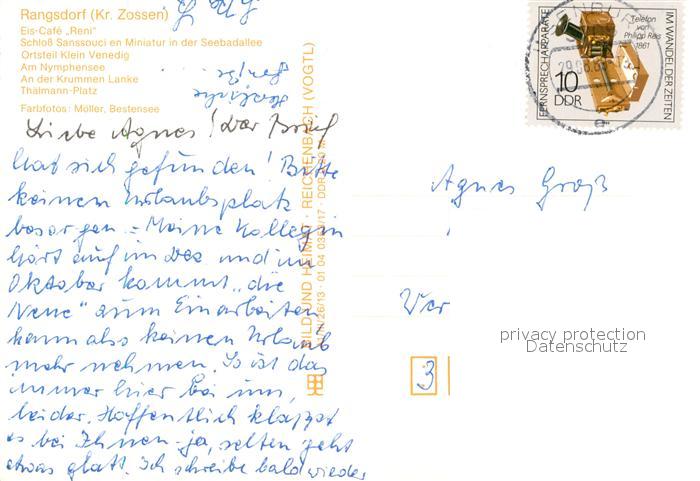 Rangsdorf (Kr. Zossen)
Eis-Café „Reni"
Schloß Sanssouci en Miniatur in der Seebadallee
Ortsteil Klein Venedig
Am Nymphensee
An der Krummen Lanke
Thälmann-Platz
Farbfotos: Möller, Bestensee
Liebe Agnes! Der Brief
hat sich gefunden! Bitte
keinen Urlaubsplatz
besorgen - Meine Kollegin
hört auf im Dez und im
Oktober kommt „die
Neue" zum Einarbeiten
kann also keinen Urlaub
mehr nehmen. So ist das
immer hier bei uns,
leider. Hoffentlich klappt
es bei Ihnen - ja, selten geht
etwas glatt. Ich schreibe bald wieder
BILD UND HEIMAT · REICHENBACH (VOGTL)
Agnes Groß
3
FERNSPRECHAPPARATE
IM WANDEL DER ZEITEN
Telefon
von
Philipp Reis
1861
10
DDR
privacy protection
Datenschutz